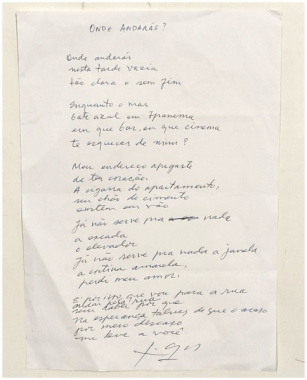 ONDE ANDARÁS?
Onde andarás
nesta tarde vazia
tão clara e sem fim
Enquanto o mar
bate azul em Ipanema
em que bar, em que cinema
te esqueces de mim?
Meu endereço apagaste
de teu coração.
A cigarra do apartamento,
seu chão de cimento
existem em vão
Já não serve pra nada
a escada
o elevador
Já não serve pra nada a janela
a cortina amarela,
perdi meu amor.
E é por isso que vou para a rua
sem saber por que
na esperança talvez de que o acaso
por mero descaso
me leve a você